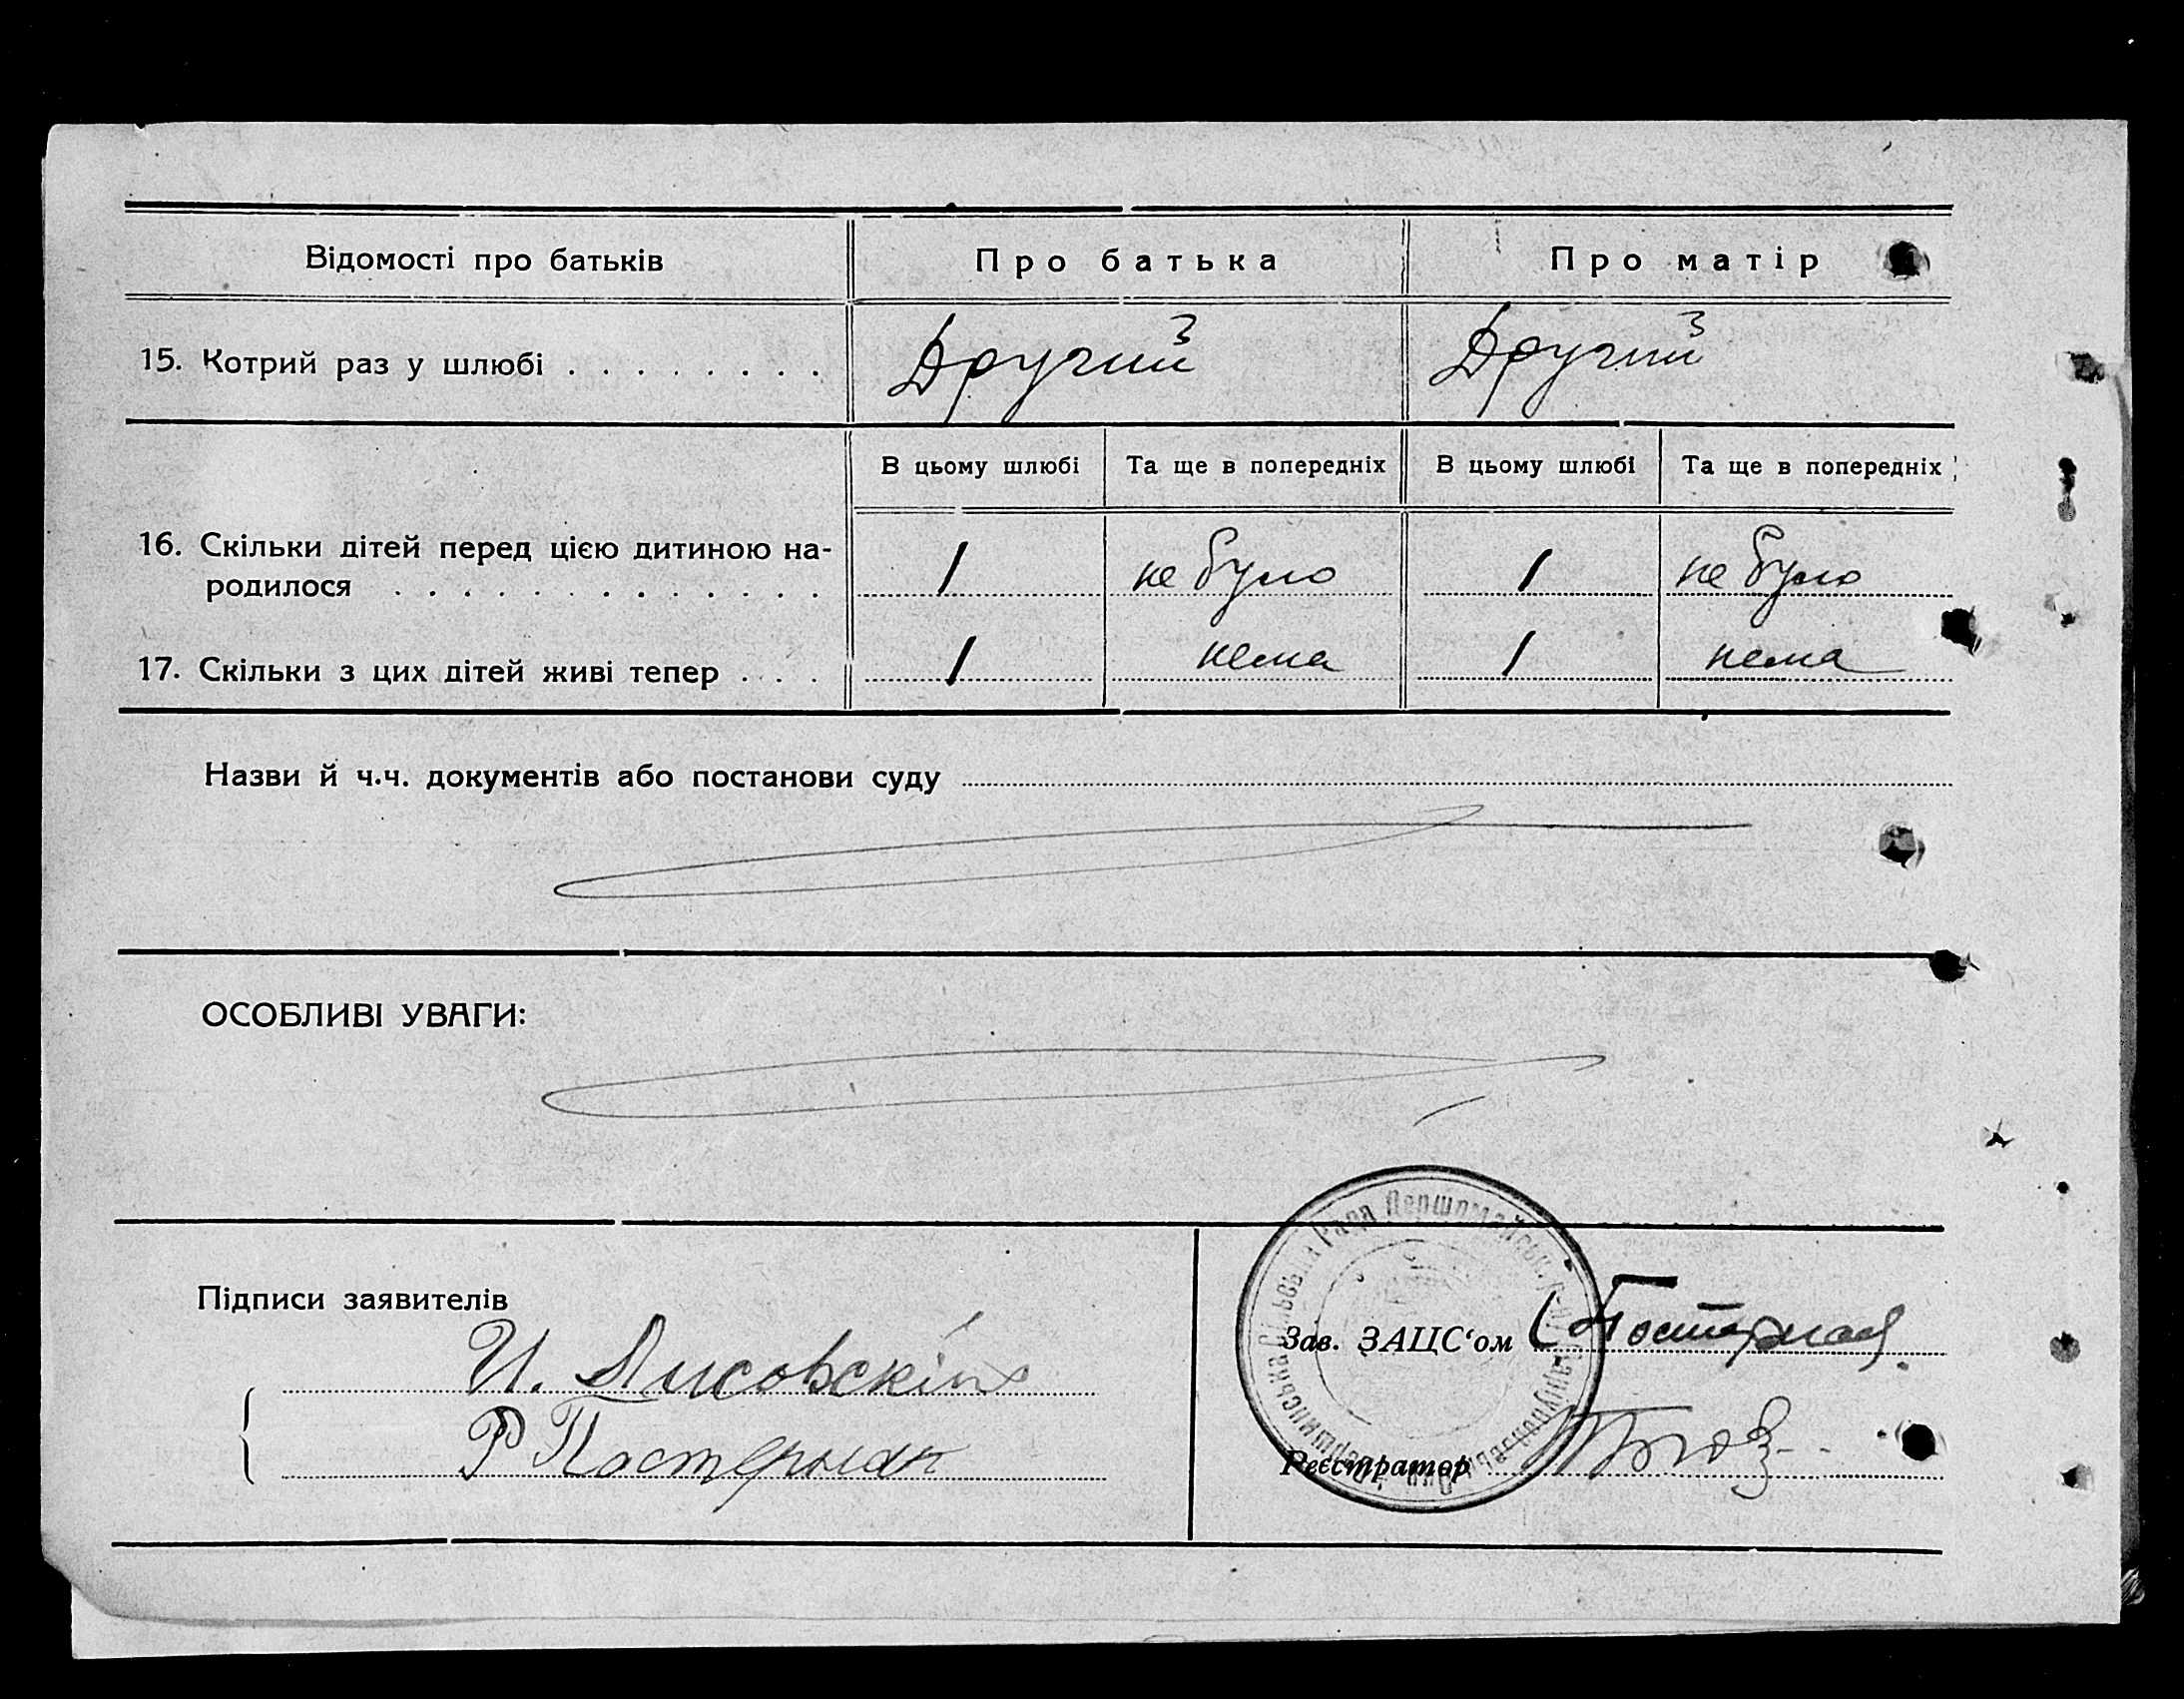 Відомості про батьків Про батька Про матір
15. Котрий раз у шлюбі . . . . . . . . Другий Другий
В цьому шлюбі Та ще в попередніх В цьому шлюбі Та ще в попередніх
16. Скільки дітей перед цією дитиною на-
родилося . . . . . . . . . . . . . 1 не було 1 не було
17. Скільки з цих дітей живі тепер . . . 1 нема 1 нема
Назви й ч.ч. документів або постанови суду
ОСОБЛИВІ УВАГИ:
Підписи заявителів
И. Лисовскій
Р Постерная
Зав. ЗАЦС‘ом Постерная
Реєстратор
Сільська Рада Першомайськ.